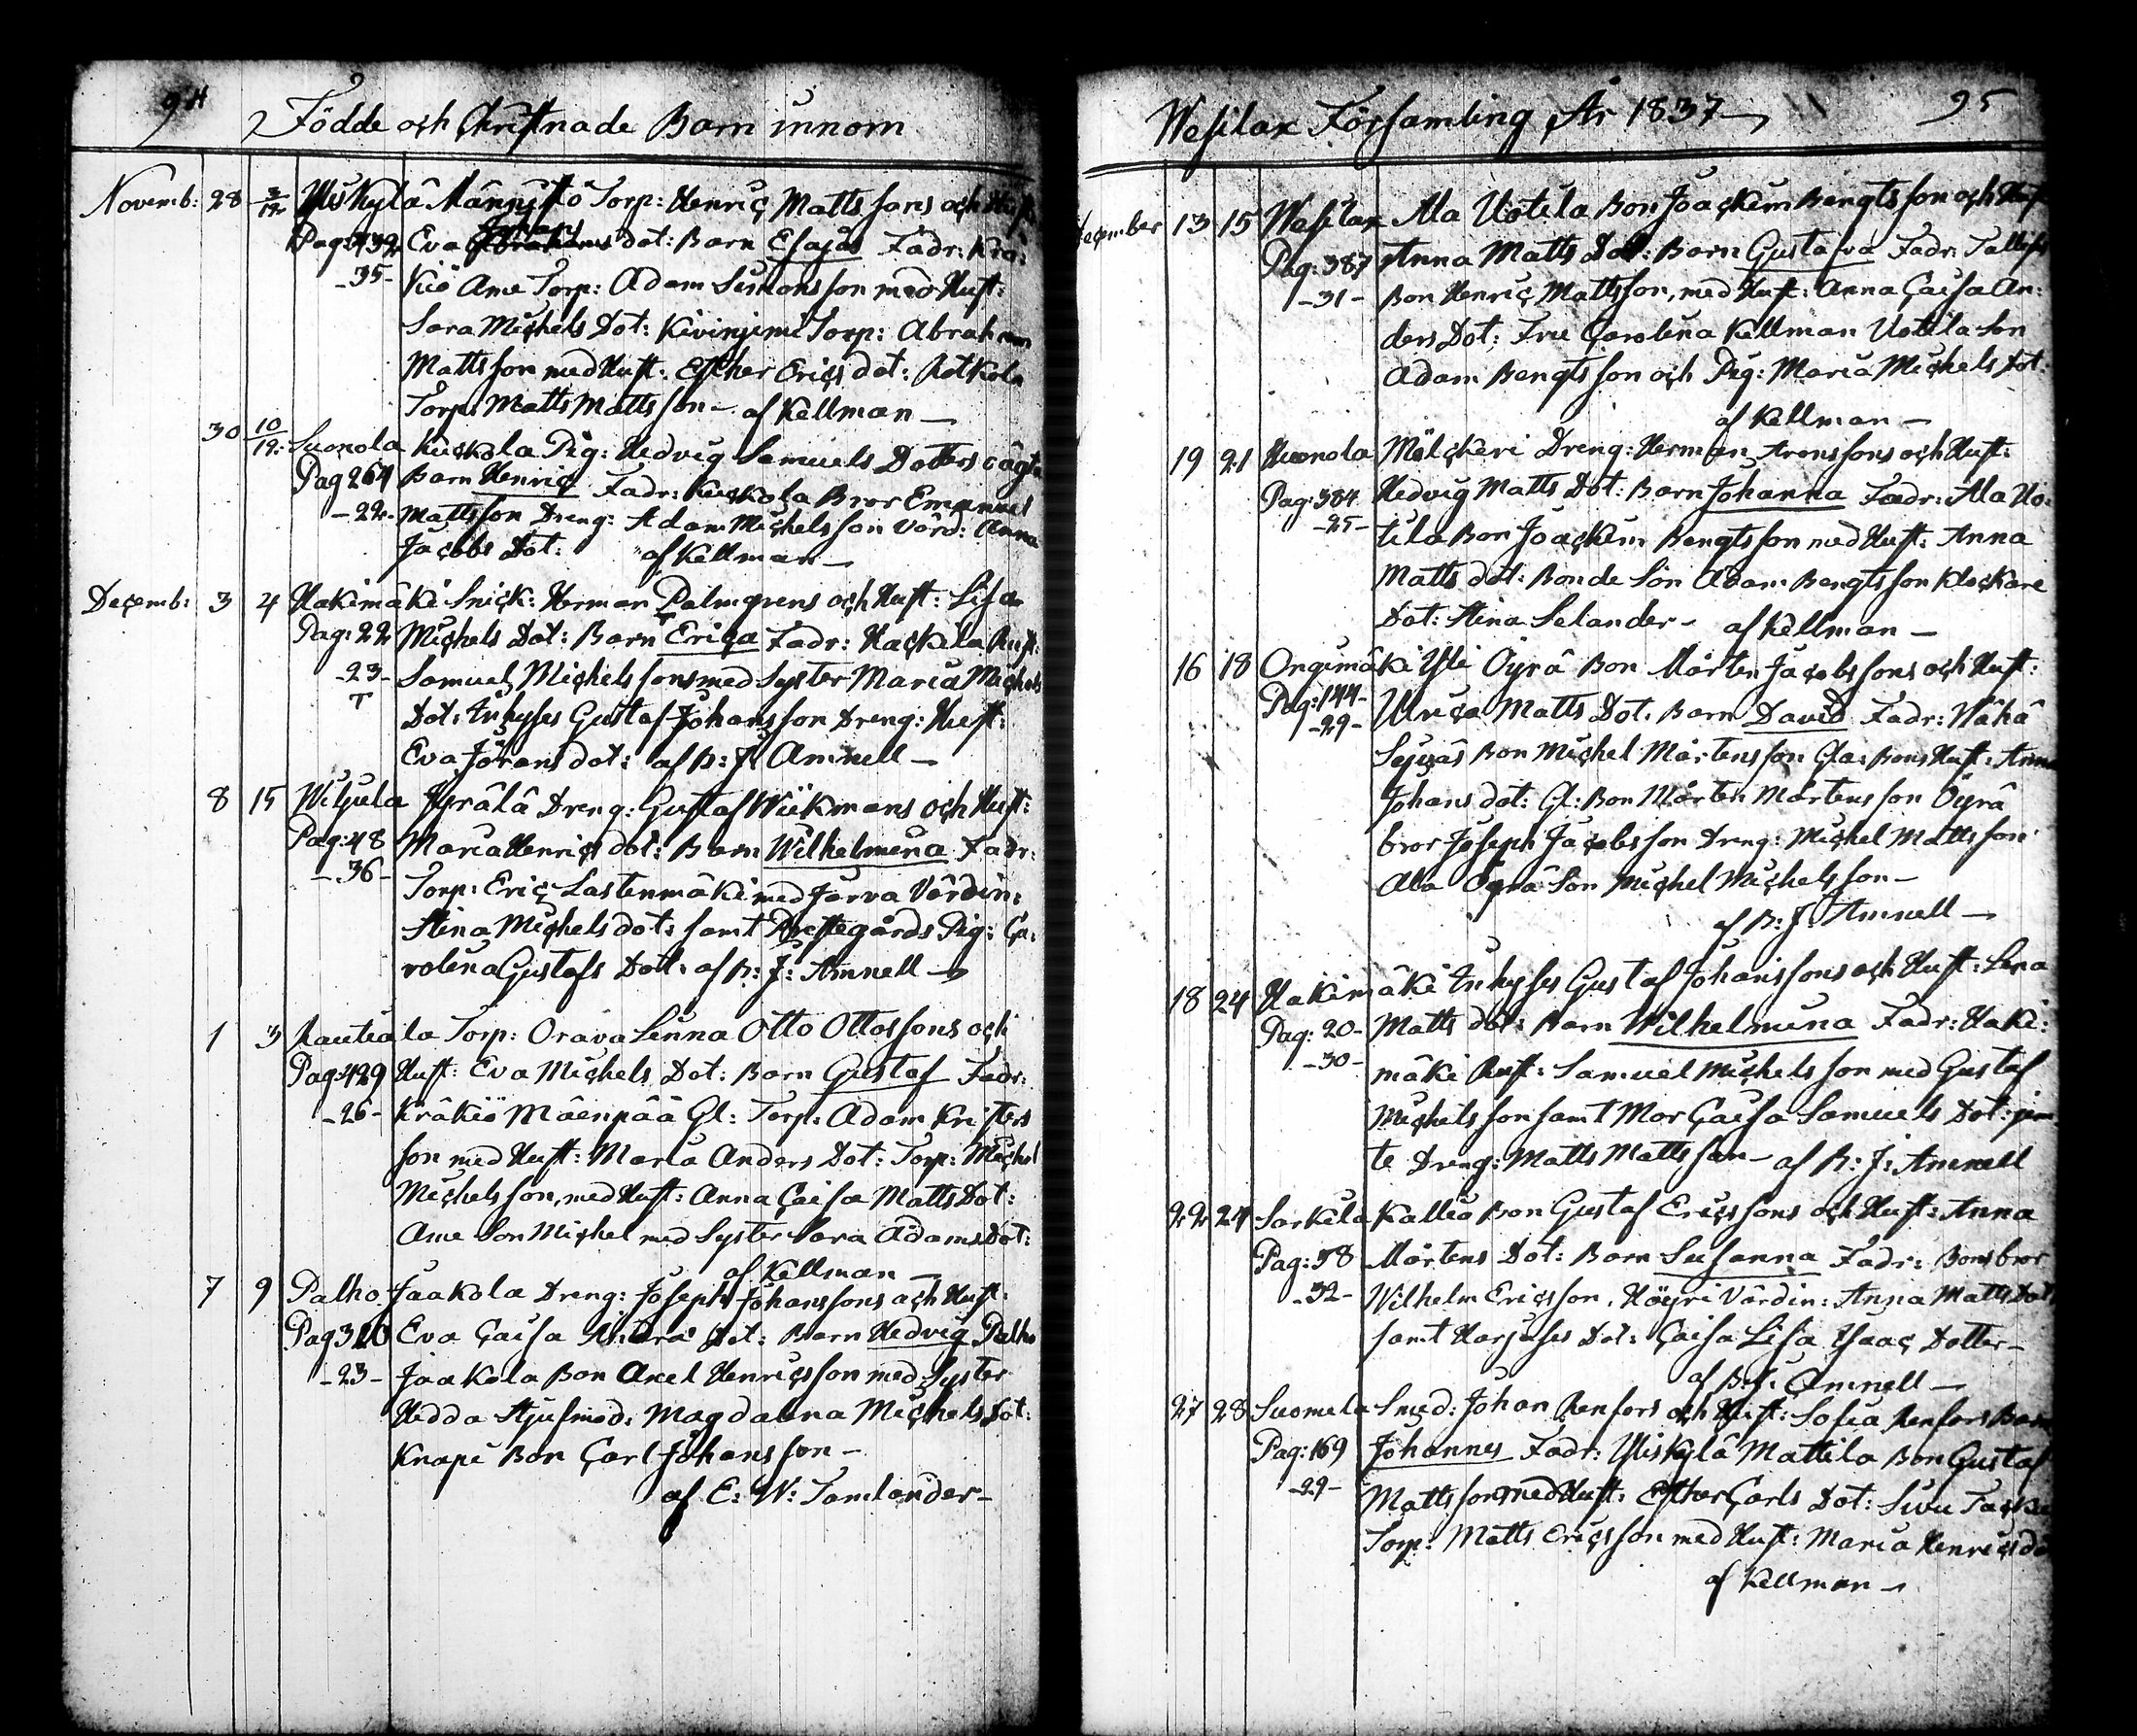 94
Födde och Christnade Barn innom
Novemb: 28 3/12 Yliskylä Männistö Torp: Henric Matts sons och Hust:
Pag: 432 Eva dot: Barn Esajas Fadr: Krä:
-35- kiö Ame Torp: Adam Simons son med Hust:
Sara Michels Dot: Kivinjemi Torp: Abraham
Matts son med Hust: Esther Erics dot: Rotkola
Torp: Matts Matts son - af Kellman -
30 10/12: Suonola Kuckola Pig: Hedvig Samuels Dotters oägta
Pag 264 Barn Henric Fadr: Kuckola Bror Emanuel
-22- Matts son Dreng: Adam Michels son Värd: Anna
Jacobs Dot: af Kellman -
Decemb: 3 4 Hakimäki Snick: Herman Palmgrens och Hust: Lisa
Pag: 22 Michels Dot: Barn Erica Fadr: Hackila Rust:
-23- Samuel Michels sons med Syster Maria Michels
Dot: Inhyses Gustaf Johans son Dreng: Hust:
Eva Jörans dot: af B: J: Amnell -
8 15 Wiljula Jyrälä Dreng: Gustaf Wiikmans och Hust:
Pag: 48 Maria Henrics dot: Barn Wilhelmina Fadr:
-36- Torp: Eric Lastenmäki med Jarva Värdin:
Stina Michels dot: samt Prestegårds Pig: Ca:
rolina Gustafs Dott: af B: J: Amnell -
1 3 Rautiala Torp: Orava Linna Otto Ottos sons och
Pag: 429 Hust: Eva Michels Dot: Barn Gustaf Fadr:
-26- Kräkiö Mäenpää Gl: Torp: Adam Kristers
son med Hust: Maria Anders Dot: Torp: Michel
Michels son, med Hust: Anna Caisa Matts Dot:
Ame Son Michel med Syster Sara Adams Dot:
af Kellman -
7 9 Palho Jaakola Dreng: Joseph Johans sons och Hust:
Pag 320 Eva Caisa Dot: Barn Hedvig Palho
-23- Jaakola Bon Axel Henrics son med Syster
Hedda Stjufmod: Magdalena Michels Dot:
Knapi Bon Carl Johans son -
af E: W: Tamlander -
Wesilax Församling År 1837 - 95
December 13 15 Wesilax Ala Uotila Bon Joackim Bengts son och Hust
Pag: 387 Anna Matts Dot: Barn Gustafva Fadr: Tallis
-31- Bon Henric Matts son, med Hust: Anna Caisa An:
ders Dot: Fru Carolina Kellman Uotila Son
Adam Bengts son och Pig: Maria Michels Dot:
af Kellman -
19 21 Huonola Mälckeri Dreng: Herman Arons sons och Hust:
Pag: 384 Hedvig Matts Dot: Barn Johanna Fadr: Ala Uo:
-25- tila Bon Joackim Bengts son med Hust: Anna
Matts dot: Bonde Son Adam Bengts son Klockare
Dot: Stina Selander - af Kellman -
16 18 Ongimäki Yli Öyrä Bon Mårten Jacobs sons och Hust:
Pag: 144- Ulrica Matts Dot: Barn David Fadr: Vähä
-29- Bon Michel Mårtens son Gla: Bons Hust: Anna
Johans dot: Gl: Bon Mårten Mårtens son Öyrä
bror Joseph Jacobs son Dreng: Michel Matts son
Ala Öyrä Son Michel Michels son -
af B: J: Amnell -
18 24 Hakimäki Inhyses Gustaf Johans sons och Hust: Lena
Pag: 20- Matts dot: Barn Wilhelmina Fadr: Haki:
-30- mäki Rust: Samuel Michels son med Gustaf
Michels son samt Mor Caisa Samuels Dot:
te Dreng: Matts Matts son - af B: J: Amnell
22 24 Sarkila Kallio Bon Gustaf Erics sons och Hust: Anna
Pag: 58 Mårtens Dot: Barn Susanna Fadr: Bons bror
-32- Wilhelm Erics son, Höyri Värdin: Anna Matts Dot:
samt Harjuses Dot: Caisa Lisa Isaac Dotter -
af B: J: Amnell -
27 28 Suomela Smed: Johan Renfors och Hust: Sofia Renfors Barn
Pag: 169 Johannes Fadr: Yliskylä Mattila Bon Gustaf
-29- Matts son med Hust: Esther Carls Dot: Sivu
Torp: Matts Erics son med Hust: Maria Henrics dot
af Kellman -